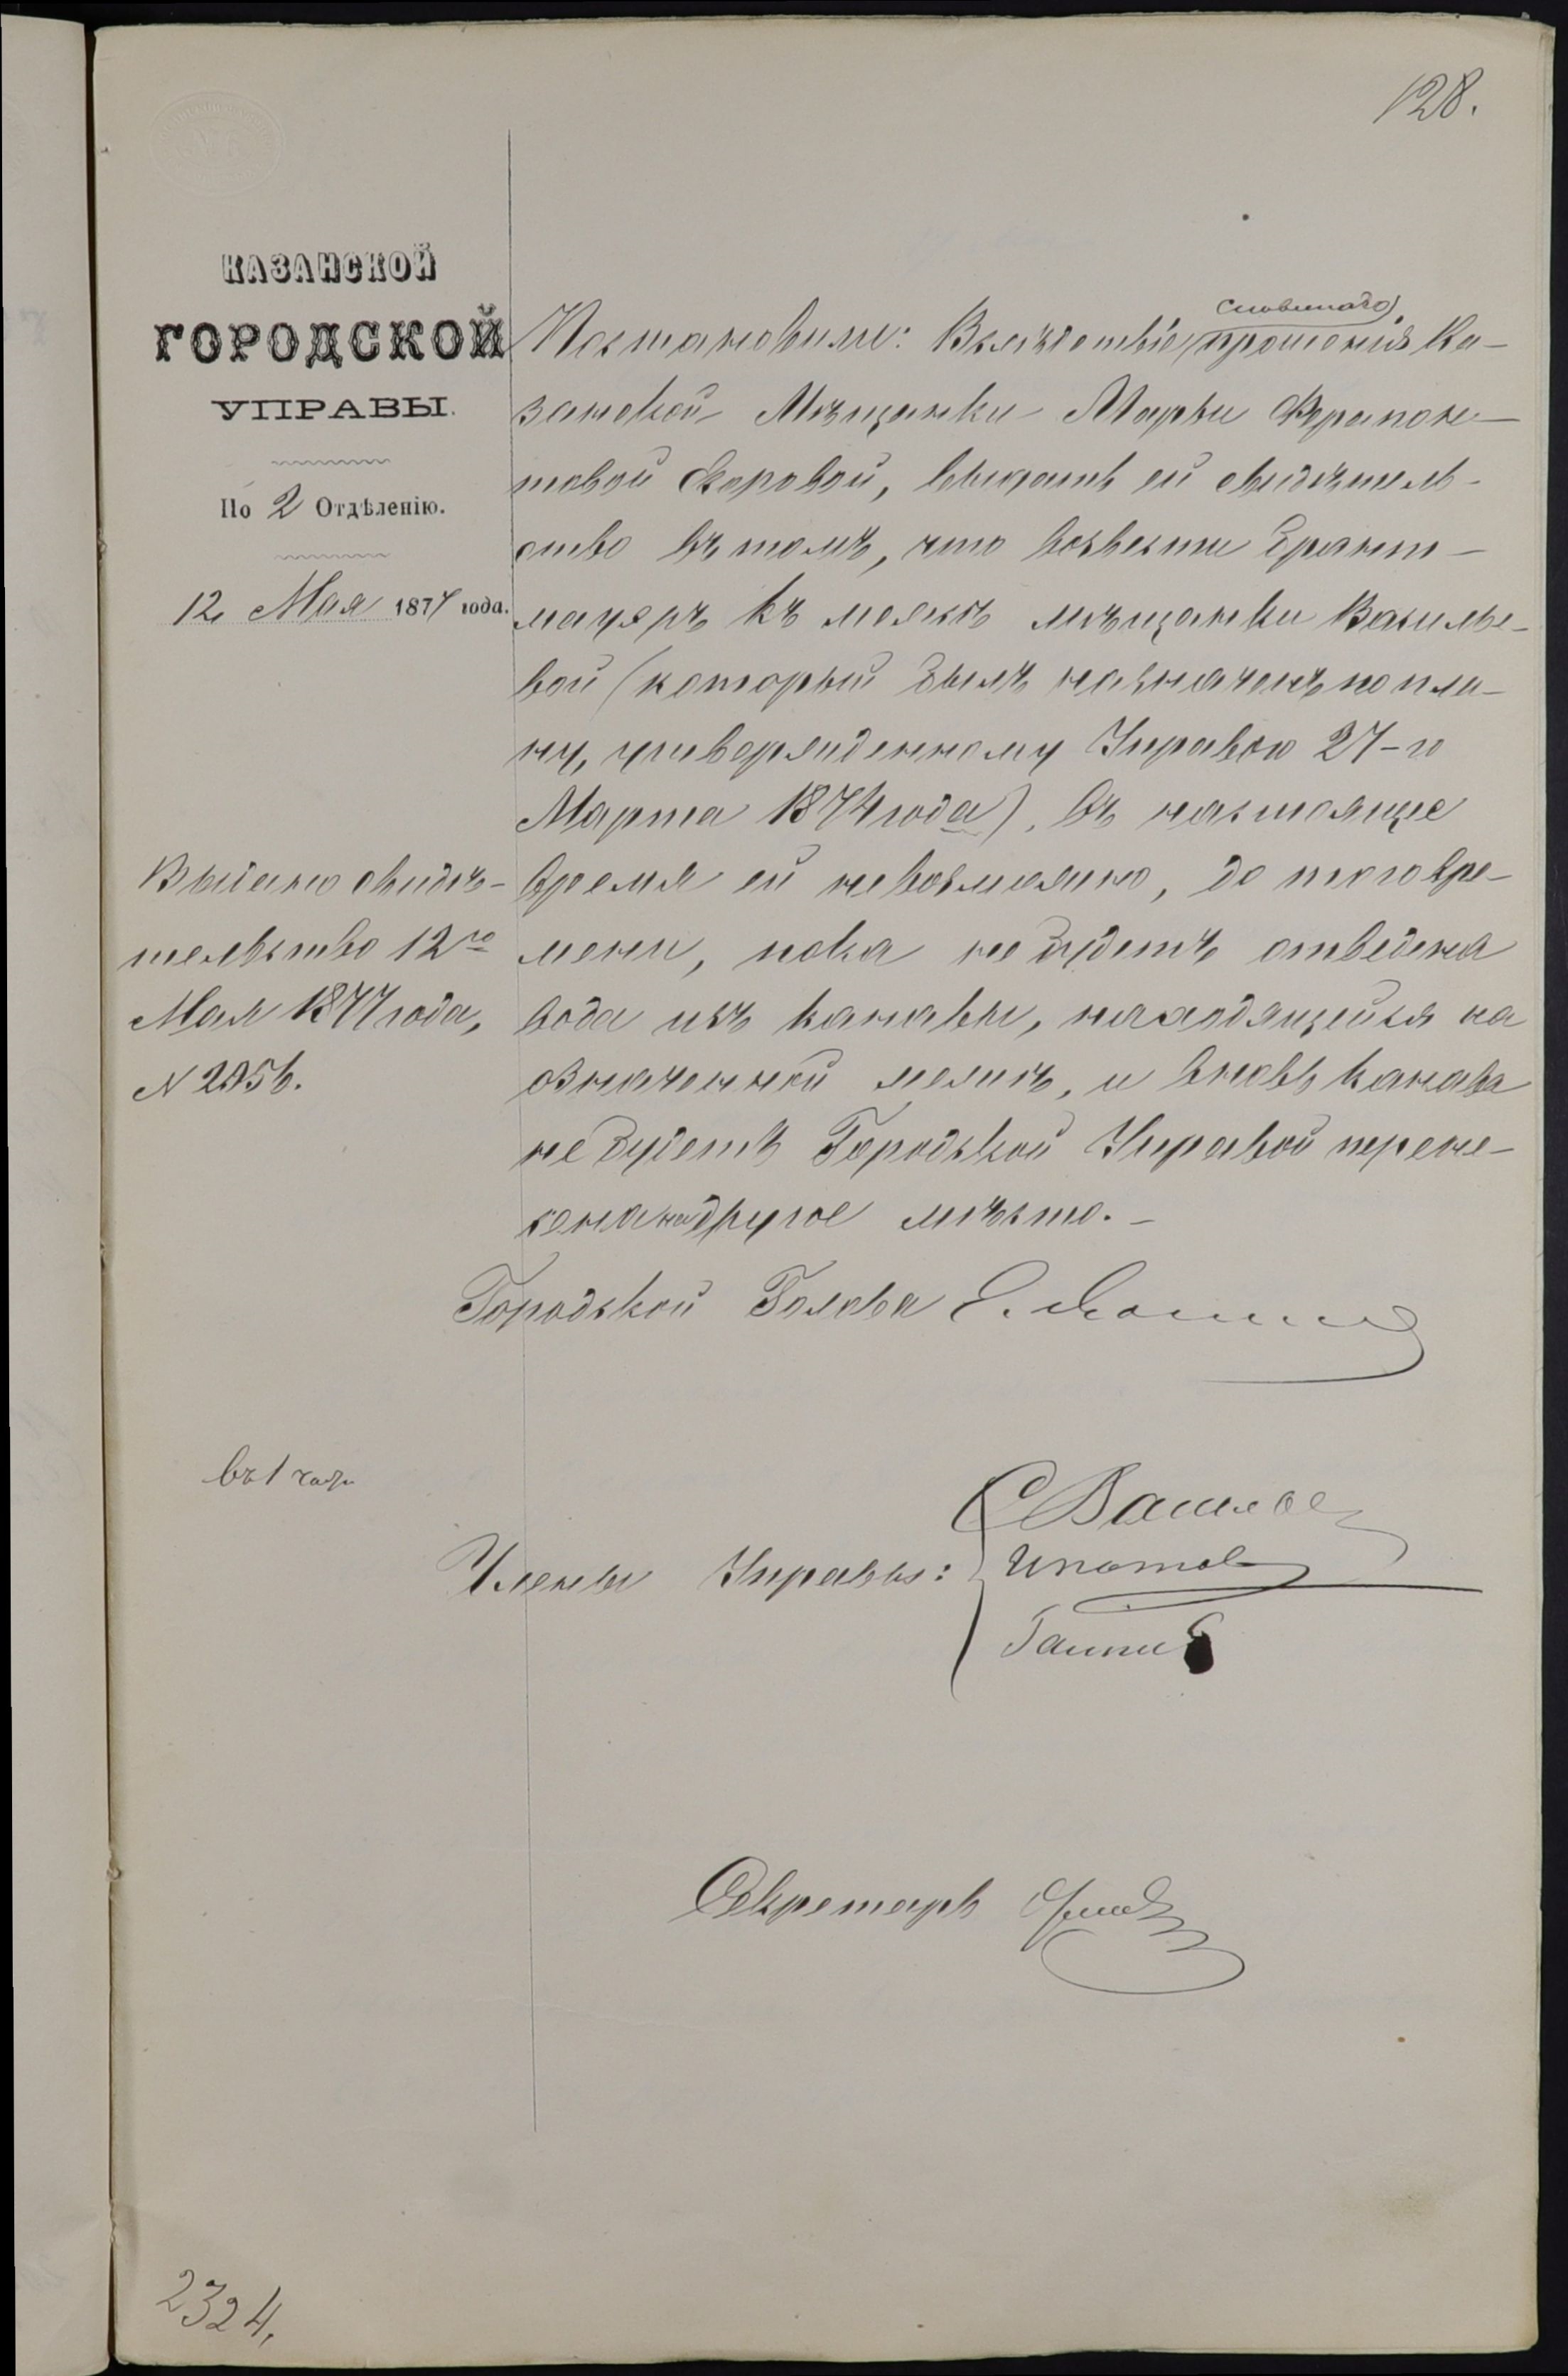 128.
КАЗАНСКОЙ
ГОРОДСКОЙ
УПРАВЫ.
По 2 Отдѣленію.
12 Мая 1877 года.
словеснаго
Постановили: Вслѣдствіе прошенія Ка-
занской Мѣщанки Марьи Ферапон-
товой выдать ей свидѣтель-
ство въ томъ, что возвести брант-
мауеръ къ межѣ мѣщанки Василье-
вой (который былъ назначенъ по пла-
ну, утвержденному Управою 27-го
Марта 1874 года), въ настоящее
время ей невозможно, до того вре-
мени, пока не будетъ отведена
вода изъ канавы, находящейся на
означенной межѣ, и вновь канава
не будетъ Городской Управой перене-
сена на другое мѣсто. -
Выдано свидѣ-
тельство 12го
Мая 1877 года,
Городской Голова
въ 1 часъ
Члены Управы:
Ипатов
Секретарь
2324,